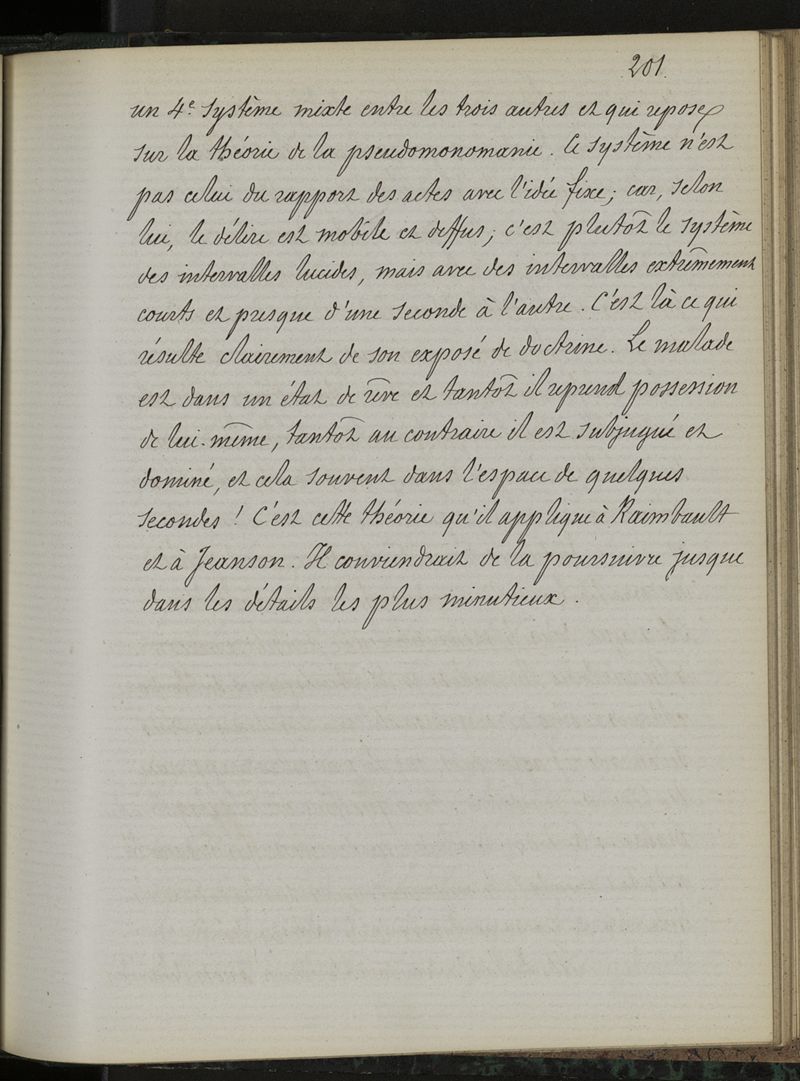 201.
un 4e système mixte entre les trois autres et qui repose
sur la théorie de la pseudomonomanie. Ce système n'est
pas celui du rapport des actes avec l'idée fixe; car, selon
lui, le délire est mobile et diffus; c'est plutôt le système
des intervalles lucides, mais avec des intervalles extrêmement
courts et presque d'une seconde à l'autre. C'est là ce qui
résulte clairement de son exposé de doctrine. Le malade
est dans un état de rêve et tantôt il reprend possession
de lui-même, tantôt au contraire il est subjugué et
dominé, et cela souvent dans l'espace de quelques
secondes! C'est cette théorie qu'il applique à Raimbault
et à Jeanson. Il conviendrait de la poursuivre jusque
dans les détails les plus minutieux.